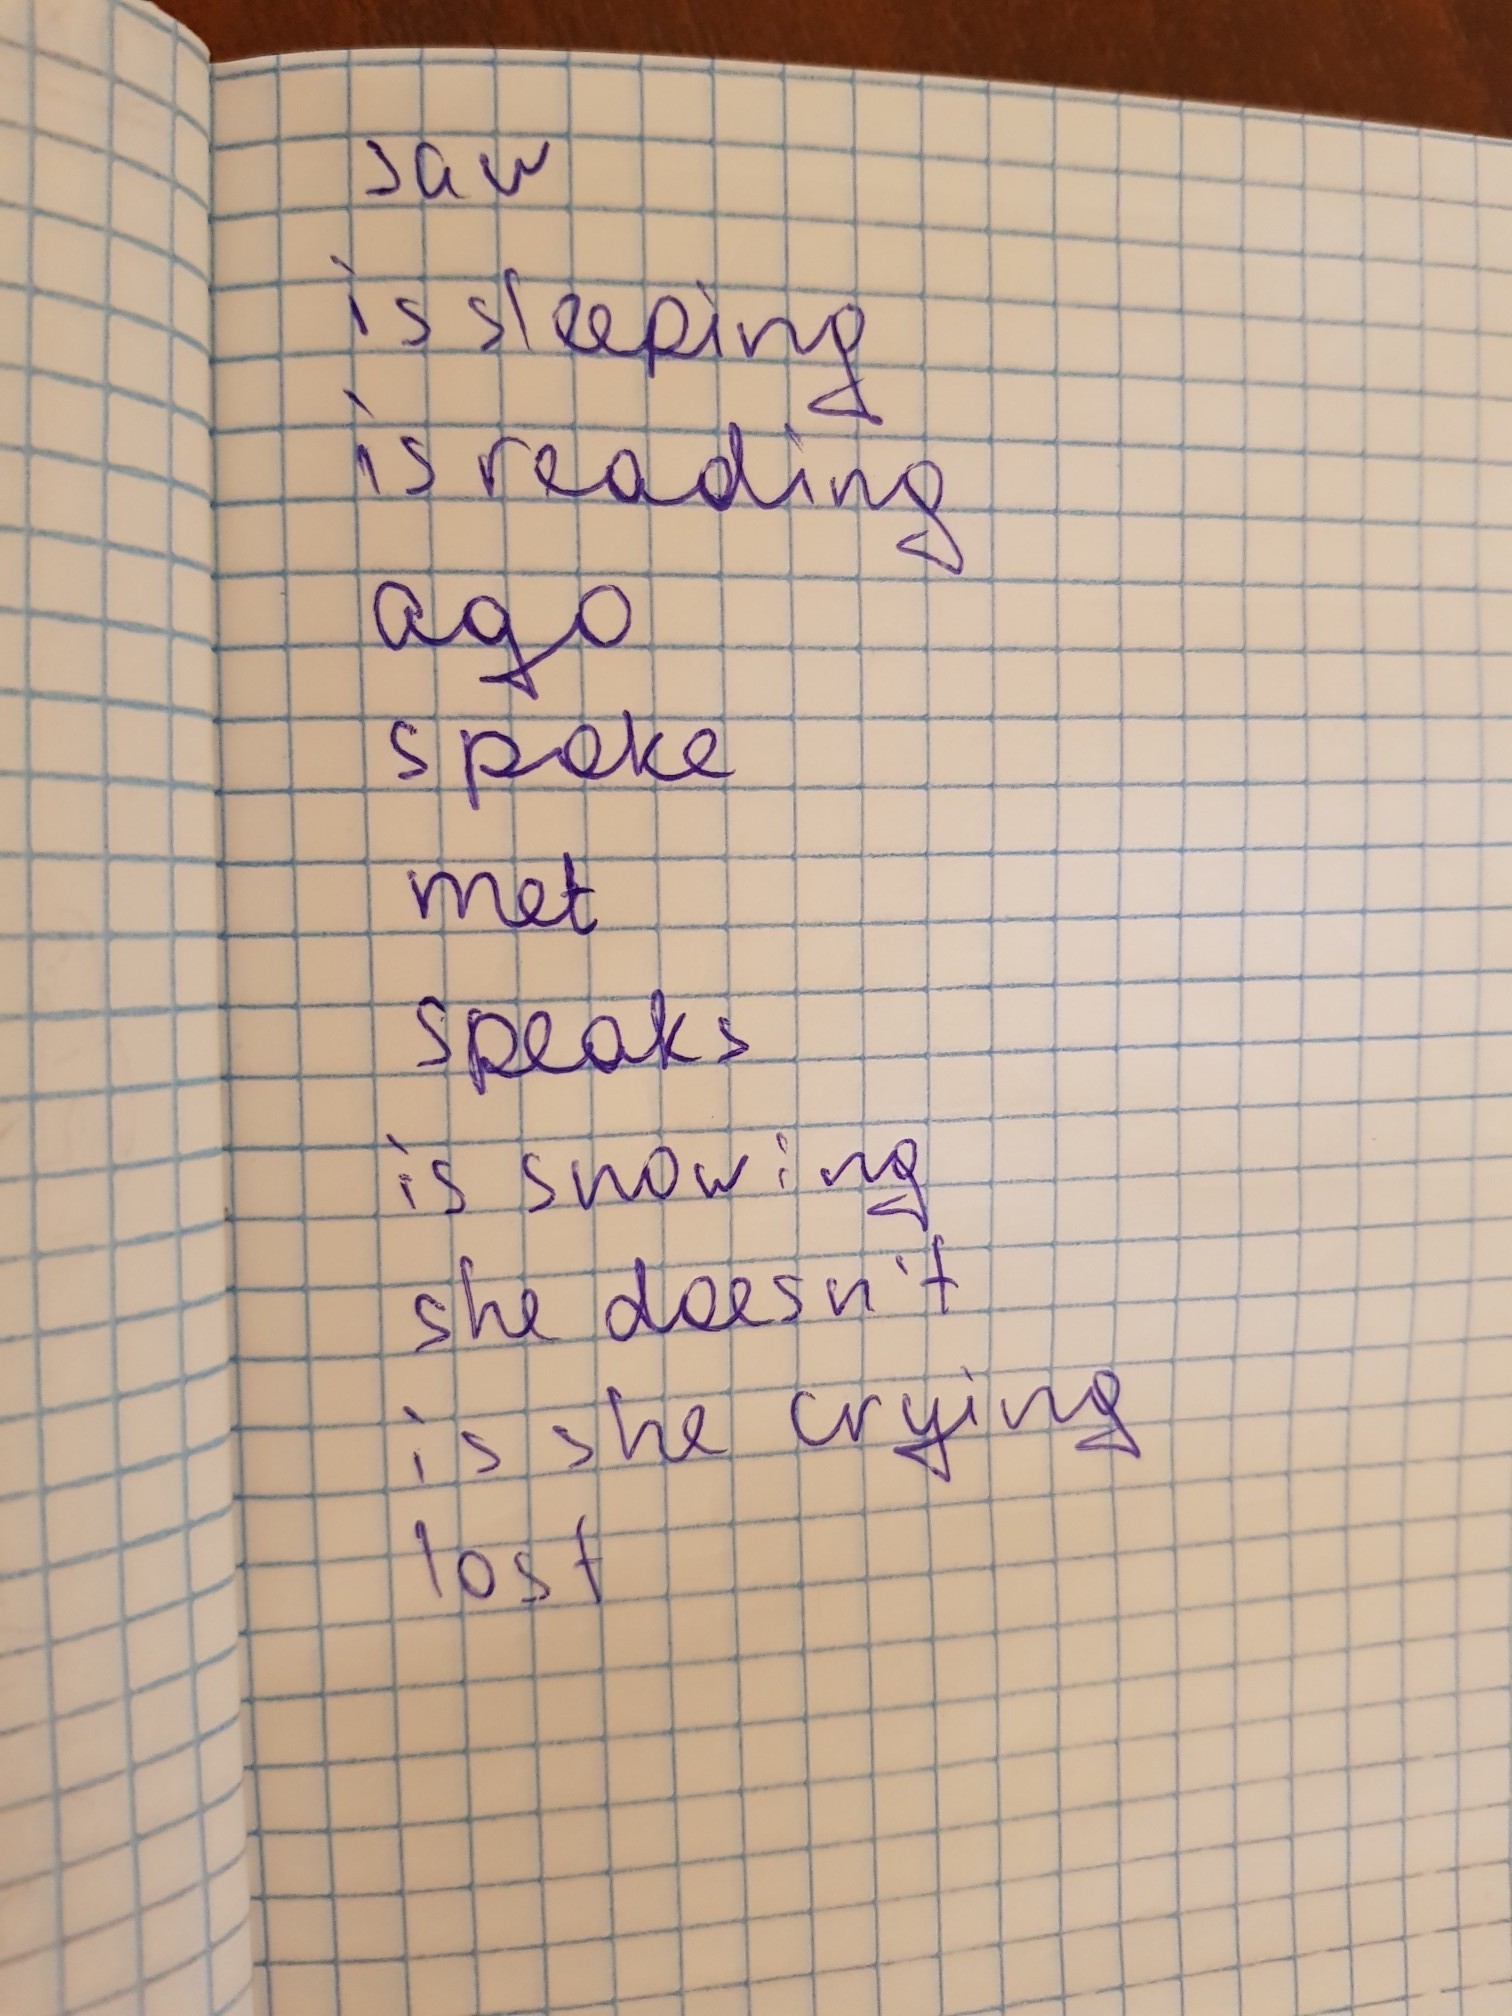 saw
is sleeping
is reading
ago
spoke
met
speaks
is snowing
she doesn't
is she crying
lost